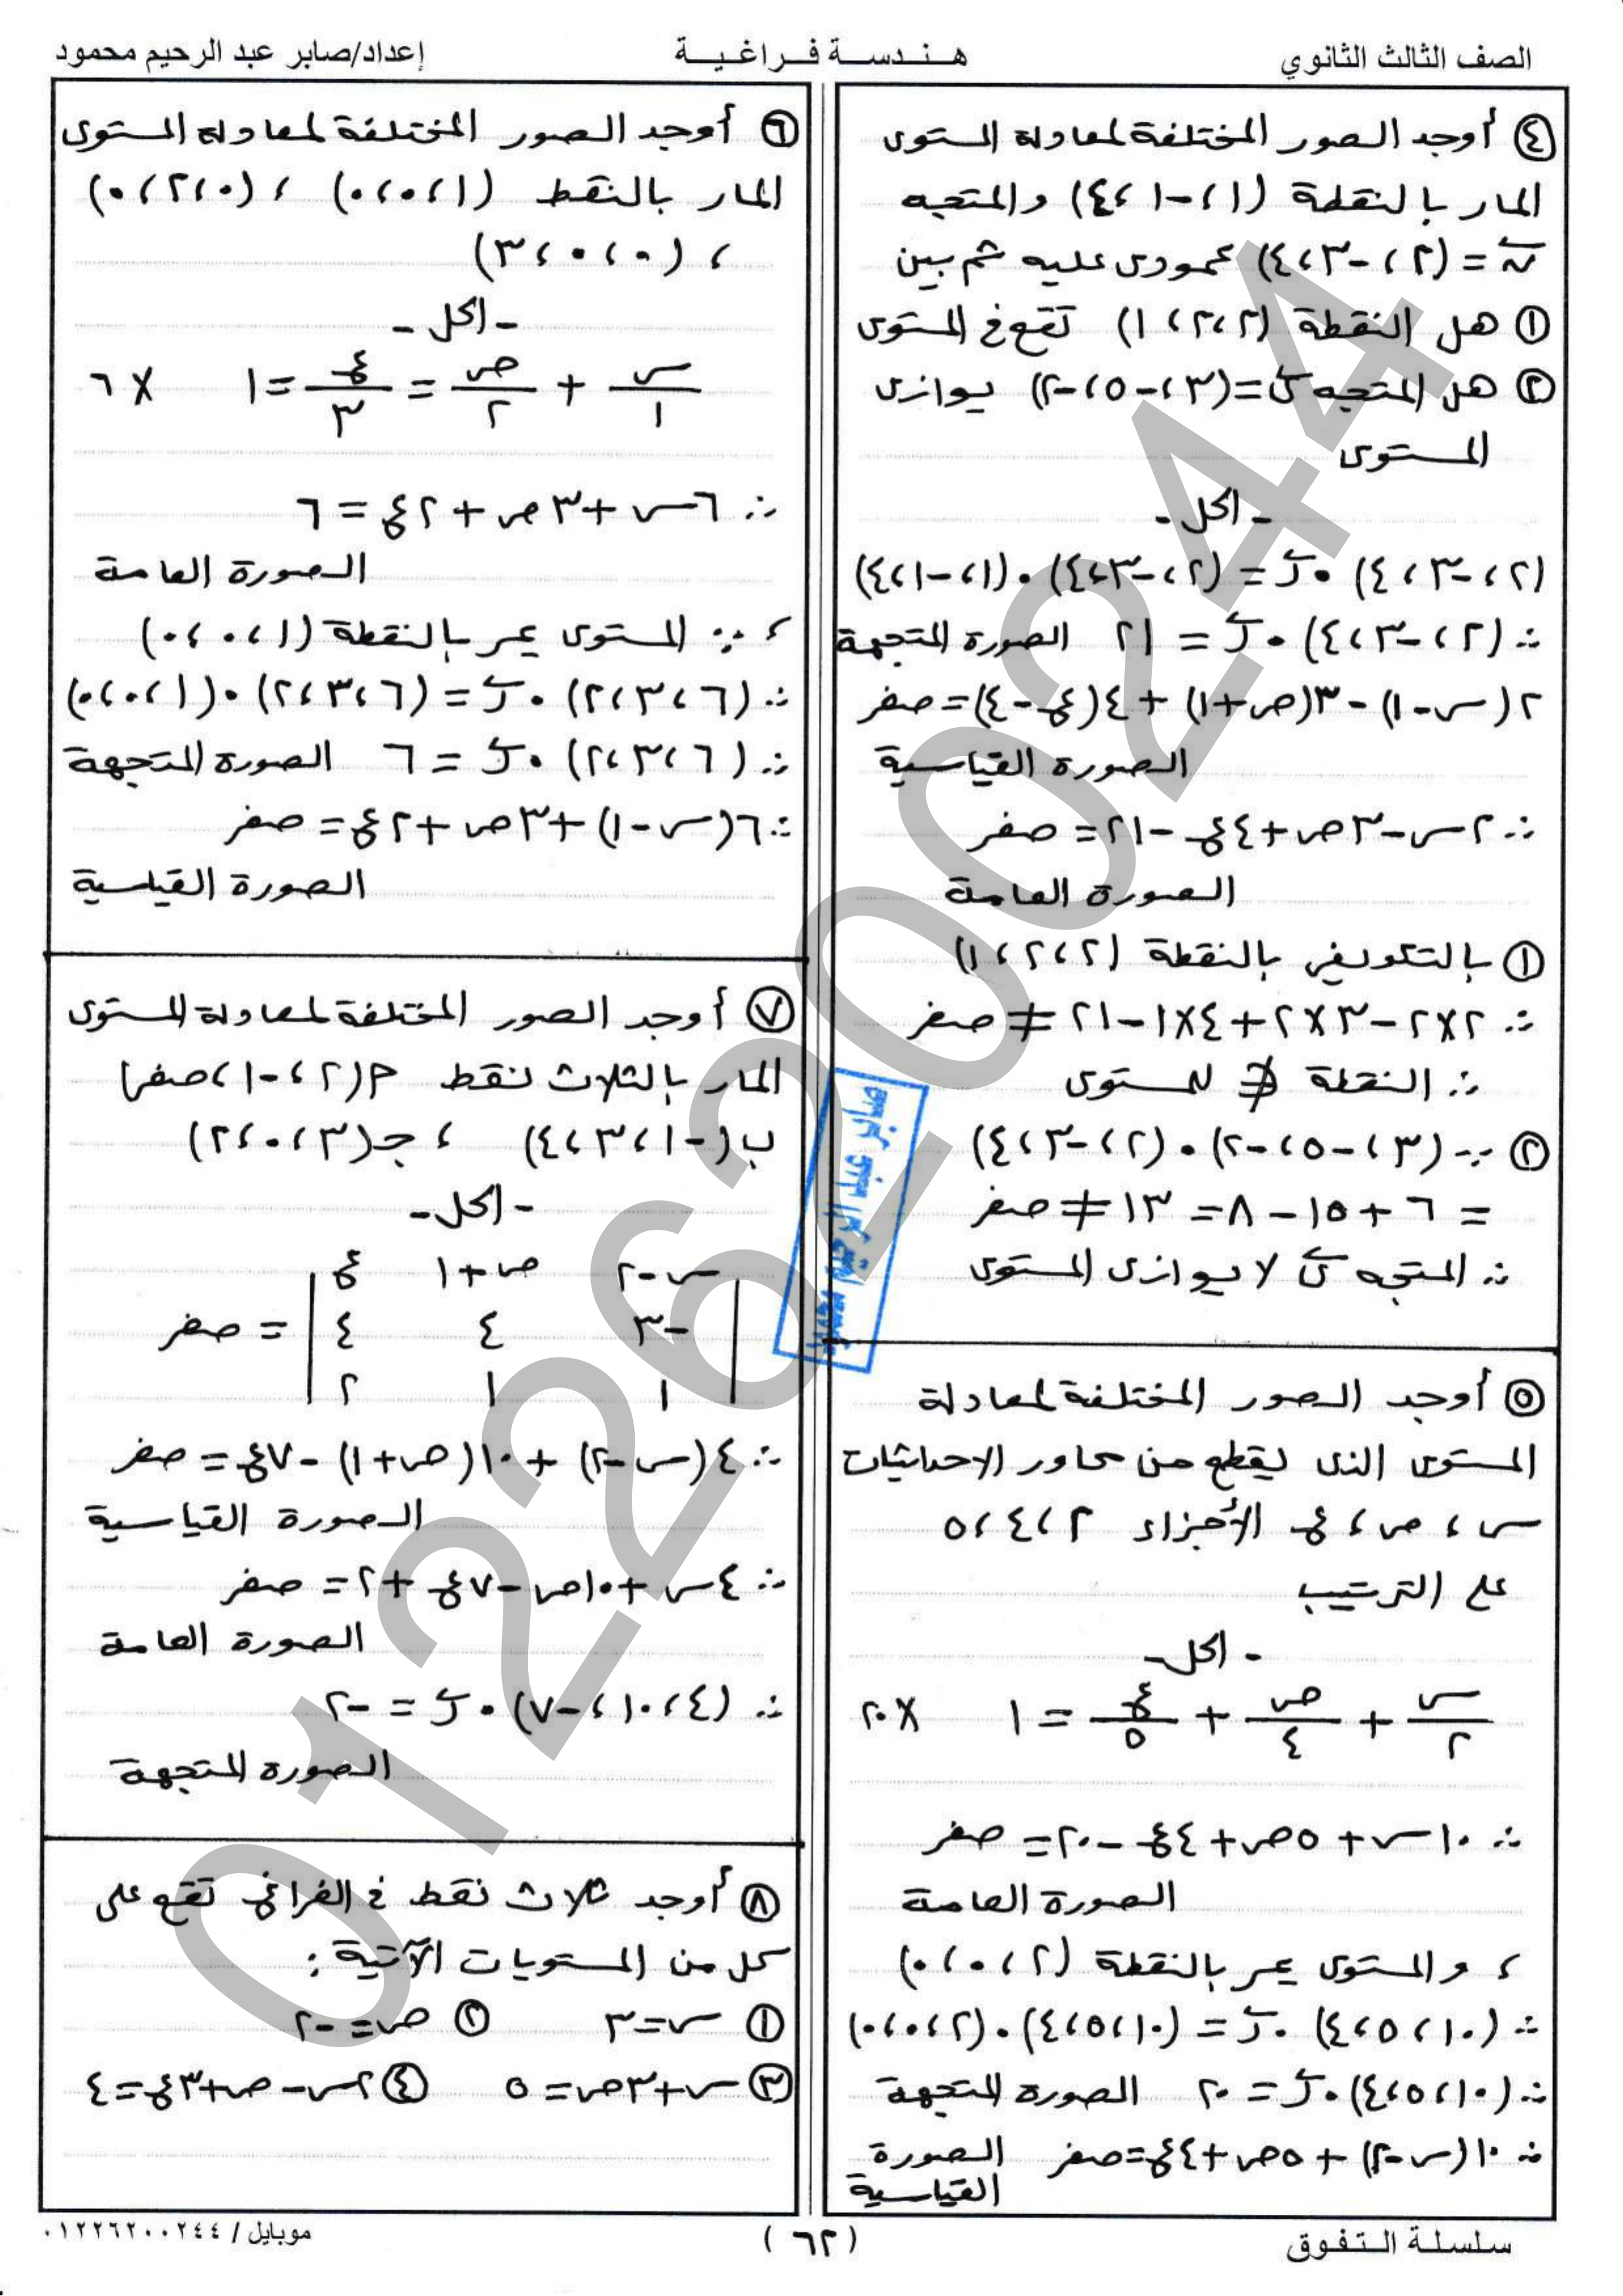 الصف الثالث الثانوي
هـنـدسـة فـراغـيـة
إعداد/صابر عبد الرحيم محمود
④ أوجد الصور المختلفة لمعادلة المستوى
المار بالنقطة (١، -١، ٤) والمتجه
ن = (٢، -٣، ٤) عمودى عليه ثم بين
① هل النقطة (٢، ٢، ١) تقع فى المستوى
② هل المتجه ى = (٣، -٥، -٢) يوازى
المستوى
- الحل -
(٢، -٣، ٤) • ر = (٢، -٣، ٤) • (١، -١، ٤)
∴ (٢، -٣، ٤) • ر = ٢١ الصورة المتجهة
٢(س - ١) - ٣(ص + ١) + ٤(ع - ٤) = صفر
الصورة القياسية
∴ ٢س - ٣ص + ٤ع - ٢١ = صفر
الصورة العامة
① بالتعويض بالنقطة (٢، ٢، ١)
∴ ٢×٢ - ٣×٢ + ٤×١ - ٢١ ≠ صفر
∴ النقطة ∉ للمستوى
② ∵ (٣، -٥، -٢) • (٢، -٣، ٤)
= ٦ + ١٥ - ٨ = ١٣ ≠ صفر
∴ المتجه ى لا يوازى المستوى
⑤ أوجد الصور المختلفة لمعادلة
المستوى الذى يقطع من محاور الاحداثيات
س، ص، ع الأجزاء ٢، ٤، ٥
على الترتيب
- الحل -
س/٢ + ص/٤ + ع/٥ = ١ × ٢٠
∴ ١٠س + ٥ص + ٤ع - ٢٠ = صفر
الصورة العامة
، والمستوى يمر بالنقطة (٢، ٠، ٠)
∴ (١٠، ٥، ٤) • ر = (١٠، ٥، ٤) • (٢، ٠، ٠)
∴ (١٠، ٥، ٤) • ر = ٢٠ الصورة المتجهة
∴ ١٠(س - ٢) + ٥ص + ٤ع = صفر الصورة
القياسية
⑥ أوجد الصور المختلفة لمعادلة المستوى
المار بالنقط (١، ٠، ٠) ، (٠، ٢، ٠)
، (٠، ٠، ٣)
- الحل -
س/١ + ص/٢ = ع/٣ = ١ × ٦
∴ ٦س + ٣ص + ٢ع = ٦
الصورة العامة
، ∵ المستوى يمر بالنقطة (١، ٠، ٠)
∴ (٦، ٣، ٢) • ر = (٦، ٣، ٢) • (١، ٠، ٠)
∴ (٦، ٣، ٢) • ر = ٦ الصورة المتجهة
∴ ٦(س - ١) + ٣ص + ٢ع = صفر
الصورة القياسية
⑦ أوجد الصور المختلفة لمعادلة المستوى
المار بالثلاث نقط م(٢، -١، صفر)
ب(-١، ٣، ٤) ، جـ(٣، ٠، ٢)
- الحل -
س-٢ ص+١ ع
-٣ ٤ ٤ = صفر
١ ١ ٢
∴ ٤(س - ٢) + ١٠(ص + ١) - ٧ع = صفر
الصورة القياسية
∴ ٤س + ١٠ص - ٧ع + ٢ = صفر
الصورة العامة
∴ (٤، ١٠، -٧) • ر = -٢
الصورة المتجهة
⑧ أوجد ثلاث نقط فى الفراغ تقع على
كل من المستويات الآتية :
① س = ٣ ② ص = -٢
③ س + ٣ص = ٥ ④ ٢س - ص + ٣ع = ٤
سلسلة التفوق
(٦٢)
موبايل / ٠١٢٢٦٢٠٠٢٤٤
01226200244